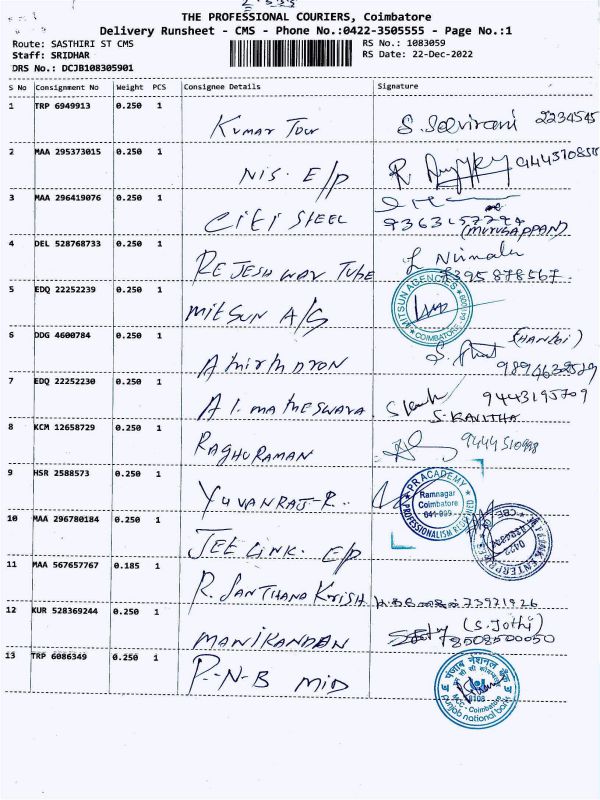 THE PROFESSIONAL COURIERS, Coimbatore
Delivery Runsheet - CMS - Phone No.:0422-3505555 - Page No.:1
Route: SASTHIRI ST CMS
RS No.: 1083059
Staff: SRIDHAR
RS Date: 22-Dec-2022
DRS No.: DCJB108305901
S No Consignment No Weight PCS Consignee Details Signature
1 TRP 6949913 0.250 1
Kumar Tour S. Selvirani 2234545
2 MAA 295373015 0.250 1
NIS. E/P R
3 MAA 296419076 0.250 1
CITI STEEL
(MURUGAPPAN)
4 DEL 528768733 0.250 1
REJESHWAR TUBE Nirmala
7395878567.
5 EDQ 22252239 0.250 1
MITSUN A/G
MITSUN AGENCIES
COIMBATORE
6 DDG 4600784 0.250 1
7 EDQ 22252230 0.250 1
9443195709
S. KAVITHA
8 KCM 12658729 0.250 1
RAGHURAMAN
9 HSR 2588573 0.250 1
YUVANRAJ-R.
PR ACADEMY
Ramnagar
Coimbatore
PROFESSIONALISM
10 MAA 296780184 0.250 1
JEE LINK. E/P
0422
11 MAA 567657767 0.185 1
R. SANTHANA KRISH 73971926
12 KUR 528369244 0.250 1
MANIKANDAN (S. Jothi)
78508500050
13 TRP 6086349 0.250 1
P-N-B MID
पंजाब नैशनल बैंक
MCC - Coimbatore
punjab national bank